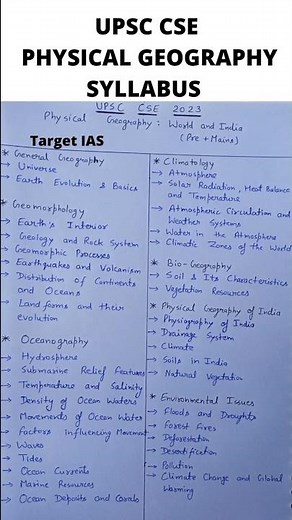 UPSC CSE
PHYSICAL GEOGRAPHY
SYLLABUS
UPSC CSE 2023
Physical Geography : World and India
(Pre + Mains)
Target IAS
* General Geography
→ Universe
→ Earth Evolution & Basics
* Geomorphology
→ Earth's Interior
→ Geology and Rock System
→ Geomorphic Processes
→ Earthquakes and Volcanism
→ Distribution of Continents
and Oceans
→ Landforms and their
evolution
* Oceanography
→ Hydrosphere
→ Submarine Relief Features
→ Temperature and Salinity
→ Density of Ocean Waters
→ Movements of Ocean Water
→ Factors influencing Movement
→ Waves
→ Tides
→ Ocean Currents
→ Marine Resources
→ Ocean Deposits and Corals
* Climatology
→ Atmosphere
→ Solar Radiation, Heat Balance
and Temperature
→ Atmospheric Circulation and
Weather Systems
→ Water in the Atmosphere
→ Climatic Zones of the World
* Bio-Geography
→ Soil & Its Characteristics
→ Vegetation Resources
* Physical Geography of India
→ Physiography of India
→ Drainage System
→ Climate
→ Soils in India
→ Natural Vegetation
* Environmental Issues
→ Floods and Droughts
→ Forest Fires
→ Deforestation
→ Desertification
→ Pollution
→ Climate Change and Global
Warming